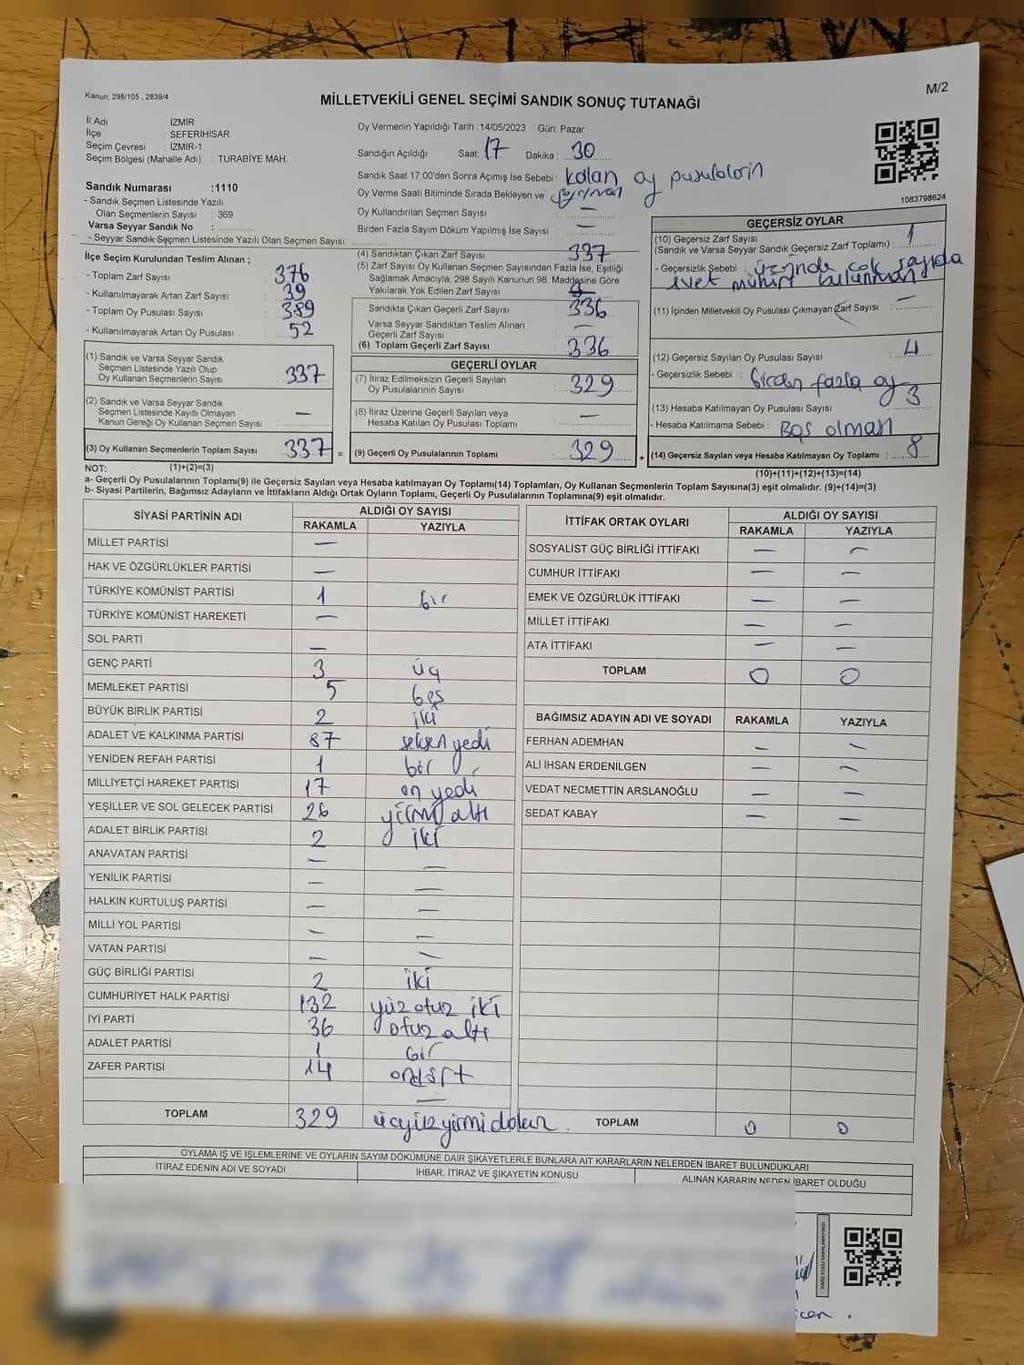 Kanun: 298/105 , 2839/4
M/2
MİLLETVEKİLİ GENEL SEÇİMİ SANDIK SONUÇ TUTANAĞI
İl Adı İZMİR
İlçe SEFERİHİSAR
Seçim Çevresi İZMİR-1
Seçim Bölgesi (Mahalle Adı) : TURABİYE MAH.
Sandık Numarası :1110
- Sandık Seçmen Listesinde Yazılı
Olan Seçmenlerin Sayısı : 369
Varsa Seyyar Sandık No :
- Seyyar Sandık Seçmen Listesinde Yazılı Olan Seçmen Sayısı:
Oy Vermenin Yapıldığı Tarih :14/05/2023 Gün: Pazar
Sandığın Açıldığı Saat: 17 Dakika : 30
Sandık Saat 17:00'den Sonra Açımış İse Sebebi: kalan oy pusulaların
Oy Verme Saati Bitiminde Sırada Bekleyen ve
Oy Kullandırılan Seçmen Sayısı : —
Birden Fazla Sayım Döküm Yapılmış İse Sayısı : —
1083798624
İlçe Seçim Kurulundan Teslim Alınan ;
- Toplam Zarf Sayısı : 376
- Kullanılmayarak Artan Zarf Sayısı : 39
- Toplam Oy Pusulası Sayısı : 389
- Kullanılmayarak Artan Oy Pusulası : 52
(1) Sandık ve Varsa Seyyar Sandık
Seçmen Listesinde Yazılı Olup
Oy Kullanan Seçmenlerin Sayısı : 337
(2) Sandık ve Varsa Seyyar Sandık
Seçmen Listesinde Kayıtlı Olmayan
Kanun Gereği Oy Kullanan Seçmen Sayısı : —
(3) Oy Kullanan Seçmenlerin Toplam Sayısı : 337 =
(4) Sandıktan Çıkan Zarf Sayısı : 337
(5) Zarf Sayısı Oy Kullanan Seçmen Sayısından Fazla İse, Eşitliği
Sağlamak Amacıyla, 298 Sayılı Kanunun 98. Maddesine Göre
Yakılarak Yok Edilen Zarf Sayısı
Sandıkta Çıkan Geçerli Zarf Sayısı : 336
Varsa Seyyar Sandıktan Teslim Alınan
Geçerli Zarf Sayısı : —
(6) Toplam Geçerli Zarf Sayısı : 336
GEÇERLİ OYLAR
(7) İtiraz Edilmeksizin Geçerli Sayılan
Oy Pusulalarının Sayısı : 329
(8) İtiraz Üzerine Geçerli Sayılan veya
Hesaba Katılan Oy Pusulası Toplamı : —
(9) Geçerli Oy Pusulalarının Toplamı : 329 +
GEÇERSİZ OYLAR
(10) Geçersiz Zarf Sayısı
(Sandık ve Varsa Seyyar Sandık Geçersiz Zarf Toplamı) : 1
- Geçersizlik Sebebi : üzerinde çok sayıda
evet mühürü bulunması
(11) İçinden Milletvekili Oy Pusulası Çıkmayan Zarf Sayısı : —
(12) Geçersiz Sayılan Oy Pusulası Sayısı : 4
- Geçersizlik Sebebi : birden fazla oy
(13) Hesaba Katılmayan Oy Pusulası Sayısı : 3
- Hesaba Katılmama Sebebi : Boş olması
(14) Geçersiz Sayılan veya Hesaba Katılmayan Oy Toplamı : 8
NOT: (1)+(2)=(3)
(10)+(11)+(12)+(13)=(14)
a- Geçerli Oy Pusulalarının Toplamı(9) ile Geçersiz Sayılan veya Hesaba katılmayan Oy Toplamı(14) Toplamları, Oy Kullanan Seçmenlerin Toplam Sayısına(3) eşit olmalıdır. (9)+(14)=(3)
b- Siyasi Partilerin, Bağımsız Adayların ve İttifakların Aldığı Ortak Oyların Toplamı, Geçerli Oy Pusulalarının Toplamına(9) eşit olmalıdır.
SİYASİ PARTİNİN ADI ALDIĞI OY SAYISI
RAKAMLA YAZIYLA
MİLLET PARTİSİ —
HAK VE ÖZGÜRLÜKLER PARTİSİ —
TÜRKİYE KOMÜNİST PARTİSİ 1 bir
TÜRKİYE KOMÜNİST HAREKETİ —
SOL PARTİ —
GENÇ PARTİ 3 üç
MEMLEKET PARTİSİ 5 beş
BÜYÜK BİRLİK PARTİSİ 2 iki
ADALET VE KALKINMA PARTİSİ 87 seksen yedi
YENİDEN REFAH PARTİSİ 1 bir
MİLLİYETÇİ HAREKET PARTİSİ 17 on yedi
YEŞİLLER VE SOL GELECEK PARTİSİ 26 yirmi altı
ADALET BİRLİK PARTİSİ 2 iki
ANAVATAN PARTİSİ — —
YENİLİK PARTİSİ — —
HALKIN KURTULUŞ PARTİSİ — —
MİLLİ YOL PARTİSİ — —
VATAN PARTİSİ — —
GÜÇ BİRLİĞİ PARTİSİ 2 iki
CUMHURİYET HALK PARTİSİ 132 yüz otuz iki
İYİ PARTİ 36 otuz altı
ADALET PARTİSİ 1 bir
ZAFER PARTİSİ 14 ondört
—
TOPLAM 329 üçyüz yirmi dokuz
İTTİFAK ORTAK OYLARI ALDIĞI OY SAYISI
RAKAMLA YAZIYLA
SOSYALİST GÜÇ BİRLİĞİ İTTİFAKI — —
CUMHUR İTTİFAKI — —
EMEK VE ÖZGÜRLÜK İTTİFAKI — —
MİLLET İTTİFAKI — —
ATA İTTİFAKI — —
TOPLAM 0 0
BAĞIMSIZ ADAYIN ADI VE SOYADI RAKAMLA YAZIYLA
FERHAN ADEMHAN — —
ALİ İHSAN ERDENİLGEN — —
VEDAT NECMETTİN ARSLANOĞLU — —
SEDAT KABAY — —
TOPLAM 0 0
OYLAMA İŞ VE İŞLEMLERİNE VE OYLARIN SAYIM DÖKÜMÜNE DAİR ŞİKAYETLERLE BUNLARA AİT KARARLARIN NELERDEN İBARET BULUNDUKLARI
İTİRAZ EDENİN ADI VE SOYADI İHBAR, İTİRAZ VE ŞİKAYETİN KONUSU ALINAN KARARIN NEDEN İBARET OLDUĞU